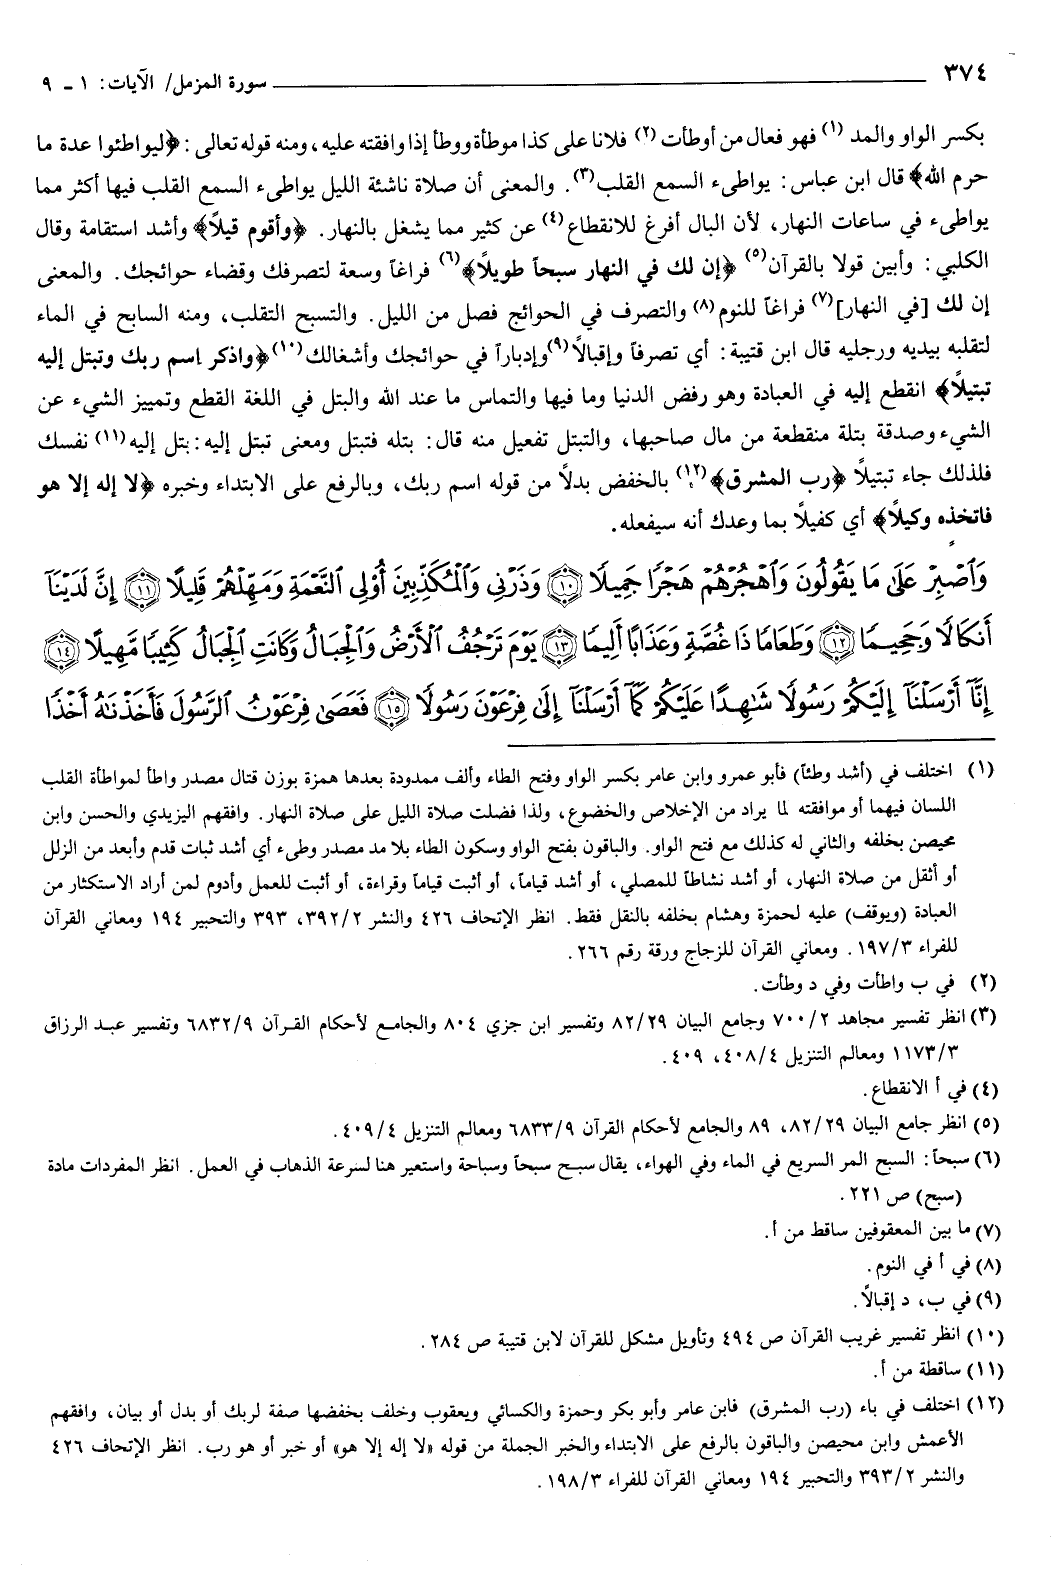 ٣٧٤ سورة المزمل/ الآيات: ١ ـ ٩
بكسر الواو والمد (١) فهو فعال من أوطأت (٢) فلانا على كذا موطأة ووطأ إذا وافقته عليه، ومنه قوله تعالى: ﴿ليواطئوا عدة ما
حرم الله﴾ قال ابن عباس: يواطىء السمع القلب(٣). والمعنى أن صلاة ناشئة الليل يواطىء السمع القلب فيها أكثر مما
يواطىء في ساعات النهار، لأن البال أفرغ للانقطاع(٤) عن كثير مما يشغل بالنهار. ﴿وأقوم قيلاً﴾ وأشد استقامة وقال
الكلبي: وأبين قولا بالقرآن(٥) ﴿إن لك في النهار سبحاً طويلاً﴾(٦) فراغاً وسعة لتصرفك وقضاء حوائجك. والمعنى
إن لك [في النهار](٧) فراغاً للنوم(٨) والتصرف في الحوائج فصل من الليل. والتسبح التقلب، ومنه السابح في الماء
لتقلبه بيديه ورجليه قال ابن قتيبة: أي تصرفاً وإقبالاً(٩) وإدباراً في حوائجك وأشغالك(١٠) ﴿واذكر اسم ربك وتبتل إليه
تبتيلاً﴾ انقطع إليه في العبادة وهو رفض الدنيا وما فيها والتماس ما عند الله والبتل في اللغة القطع وتمييز الشيء عن
الشيء وصدقة بتلة منقطعة من مال صاحبها، والتبتل تفعيل منه قال: بتله فتبتل ومعنى تبتل إليه: بتل إليه(١١) نفسك
فلذلك جاء تبتيلاً ﴿رب المشرق﴾(١٢) بالخفض بدلاً من قوله اسم ربك، وبالرفع على الابتداء وخبره ﴿لا إله إلا هو
فاتخذه وكيلاً﴾ أي كفيلاً بما وعدك أنه سيفعله.
وَٱصۡبِرۡ عَلَىٰ مَا يَقُولُونَ وَٱهۡجُرۡهُمۡ هَجۡرًا جَمِيلًا ١٠ وَذَرۡنِي وَٱلۡمُكَذِّبِينَ أُوْلِي ٱلنَّعۡمَةِ وَمَهِّلۡهُمۡ قَلِيلًا ١١ إِنَّ لَدَيۡنَآ
أَنكَالًا وَجَحِيمًا ١٢ وَطَعَامًا ذَا غُصَّةٍ وَعَذَابًا أَلِيمًا ١٣ يَوۡمَ تَرۡجُفُ ٱلۡأَرۡضُ وَٱلۡجِبَالُ وَكَانَتِ ٱلۡجِبَالُ كَثِيبًا مَّهِيلًا ١٤
إِنَّآ أَرۡسَلۡنَآ إِلَيۡكُمۡ رَسُولًا شَٰهِدًا عَلَيۡكُمۡ كَمَآ أَرۡسَلۡنَآ إِلَىٰ فِرۡعَوۡنَ رَسُولًا ١٥ فَعَصَىٰ فِرۡعَوۡنُ ٱلرَّسُولَ فَأَخَذۡنَٰهُ أَخۡذًا
(١) اختلف في (أشد وطئاً) فأبو عمرو وابن عامر بكسر الواو وفتح الطاء وألف ممدودة بعدها همزة بوزن قتال مصدر واطأ لمواطأة القلب
اللسان فيهما أو موافقته لما يراد من الإخلاص والخضوع، ولذا فضلت صلاة الليل على صلاة النهار. وافقهم اليزيدي والحسن وابن
محيصن بخلفه والثاني له كذلك مع فتح الواو. والباقون بفتح الواو وسكون الطاء بلا مد مصدر وطىء أي أشد ثبات قدم وأبعد من الزلل
أو أثقل من صلاة النهار، أو أشد نشاطاً للمصلي، أو أشد قياماً، أو أثبت قياماً وقراءة، أو أثبت للعمل وأدوم لمن أراد الاستكثار من
العبادة (ويوقف) عليه لحمزة وهشام بخلفه بالنقل فقط. انظر الإتحاف ٤٢٦ والنشر ٣٩٢/٢، ٣٩٣ والتحبير ١٩٤ ومعاني القرآن
للفراء ١٩٧/٣. ومعاني القرآن للزجاج ورقة رقم ٢٦٦.
(٢) في ب واطأت وفي د وطأت.
(٣) انظر تفسير مجاهد ٧٠٠/٢ وجامع البيان ٨٢/٢٩ وتفسير ابن جزي ٨٠٤ والجامع لأحكام القرآن ٦٨٣٢/٩ وتفسير عبد الرزاق
١١٧٣/٣ ومعالم التنزيل ٤٠٨/٤، ٤٠٩.
(٤) في أ الانقطاع.
(٥) انظر جامع البيان ٨٢/٢٩، ٨٩ والجامع لأحكام القرآن ٦٨٣٣/٩ ومعالم التنزيل ٤٠٩/٤.
(٦) سبحاً: السبح المر السريع في الماء وفي الهواء، يقال سبح سبحاً وسباحة واستعير هنا لسرعة الذهاب في العمل. انظر المفردات مادة
(سبح) ص ٢٢١.
(٧) ما بين المعقوفين ساقط من أ.
(٨) في أ في النوم.
(٩) في ب، د إقبالاً.
(١٠) انظر تفسير غريب القرآن ص ٤٩٤ وتأويل مشكل للقرآن لابن قتيبة ص ٢٨٤.
(١١) ساقطة من أ.
(١٢) اختلف في باء (رب المشرق) فابن عامر وأبو بكر وحمزة والكسائي ويعقوب وخلف بخفضها صفة لربك أو بدل أو بيان، وافقهم
الأعمش وابن محيصن والباقون بالرفع على الابتداء والخبر الجملة من قوله «لا إله إلا هو» أو خبر أو هو رب. انظر الإتحاف ٤٢٦
والنشر ٣٩٣/٢ والتحبير ١٩٤ ومعاني القرآن للفراء ١٩٨/٣.